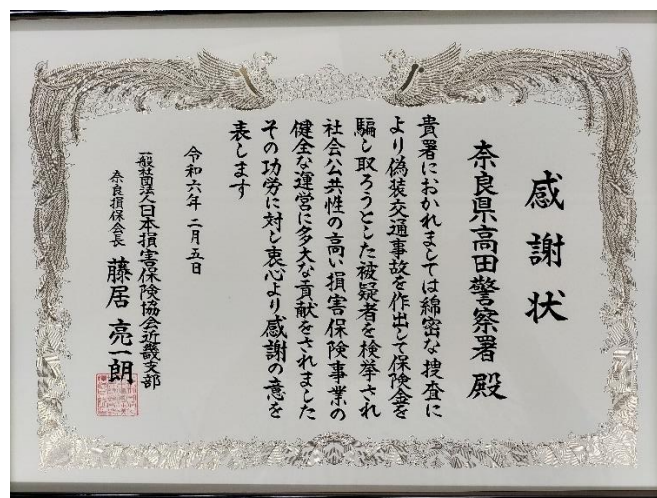 感謝状
奈良県高田警察署 殿
貴署におかれましては綿密な捜査に
より偽装交通事故を作出して保険金を
騙し取ろうとした被疑者を検挙され
社会公共性の高い損害保険事業の
健全な運営に多大な貢献をされました
その功労に対し衷心より感謝の意を
表します
令和六年 二月五日
一般社団法人日本損害保険協会近畿支部
奈良損保会長 藤居 亮一朗